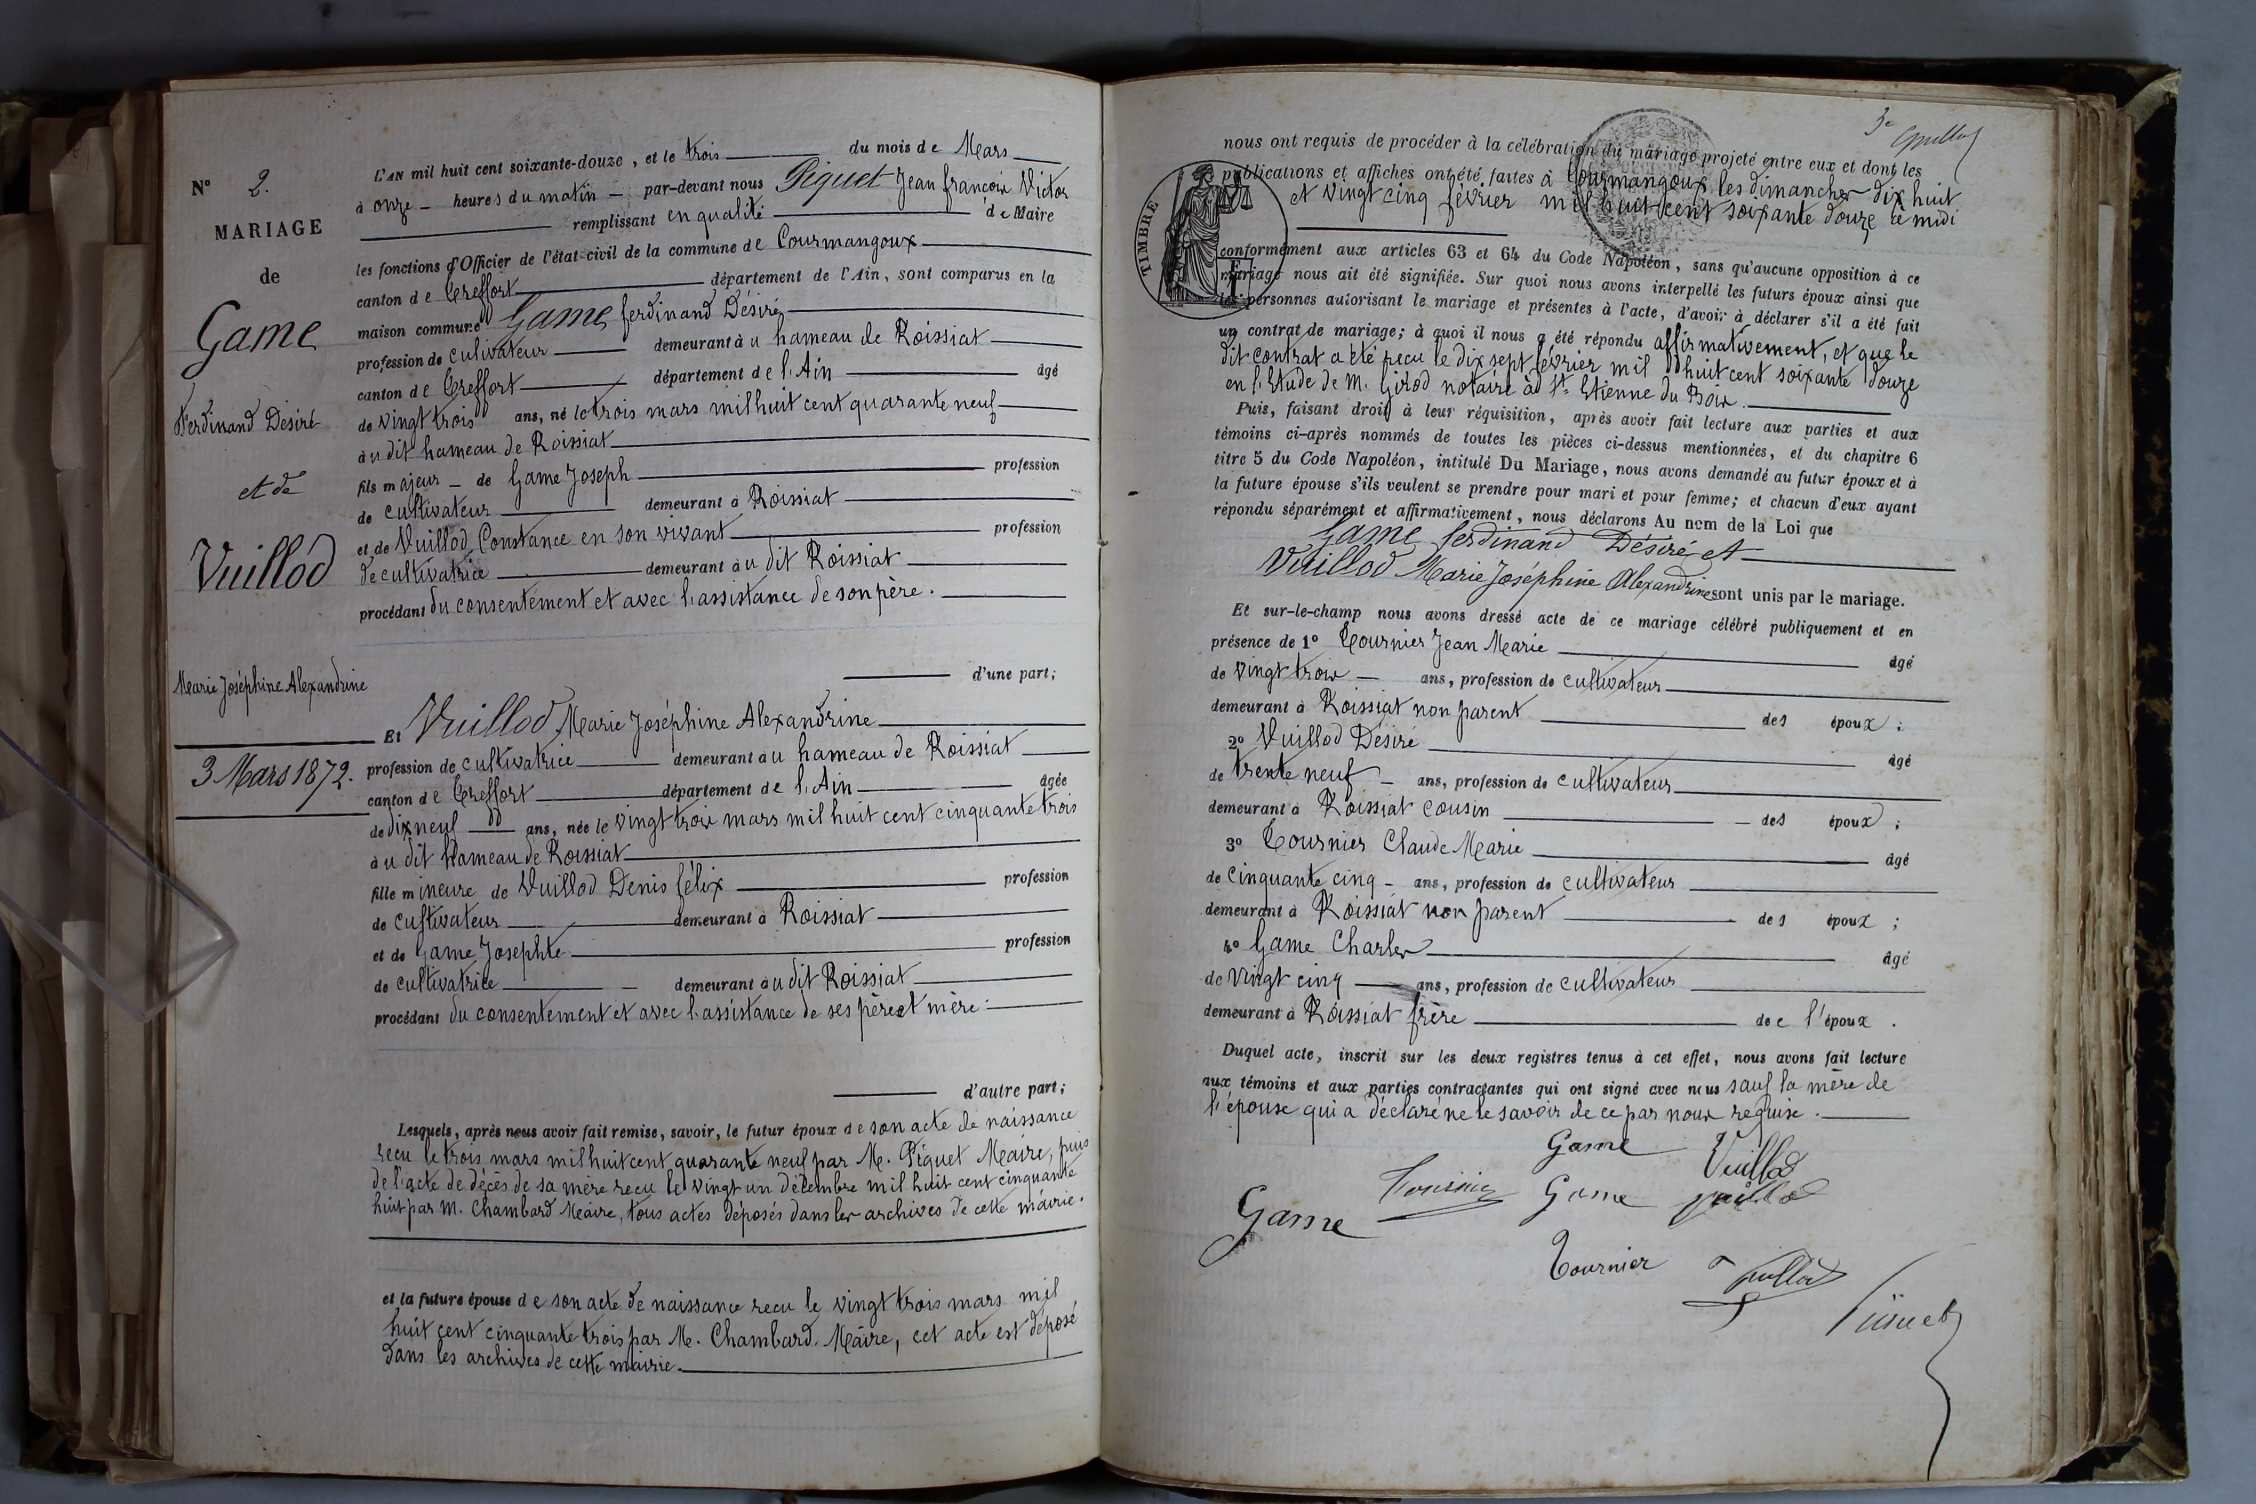 N° 2.
MARIAGE
de
Game
Ferdinand Désiré
et de
Vuillod
Marie Joséphine Alexandrine
3 Mars 1872.
L'AN mil huit cent soixante-douze, et le trois du mois de Mars
à onze heures du matin par-devant nous Piguet Jean françois Victor
remplissant en qualité de Maire
les fonctions d'Officier de l'état civil de la commune de Courmangoux
canton de Treffort département de l'Ain, sont comparus en la
maison commune Game ferdinand Désiré
profession de cultivateur demeurant à u hameau de Roissiat
canton de Treffort département de l'Ain âgé
de vingt trois ans, né le trois mars mil huit cent quarante neuf
à u dit hameau de Roissiat
fils majeur de Game Joseph profession
de cultivateur demeurant à Roissiat
et de Vuillod Constance en son vivant profession
de cultivatrice demeurant à u dit Roissiat
procédant du consentement et avec l'assistance de son père.
d'une part;
Et Vuillod Marie Joséphine Alexandrine
profession de cultivatrice demeurant à u hameau de Roissiat
canton de Treffort département de l'Ain âgée
de dix neuf ans, née le vingt trois mars mil huit cent cinquante trois
à u dit hameau de Roissiat
fille mineure de Vuillod Denis félix profession
de cultivateur demeurant à Roissiat
et de Game Josephte profession
de cultivatrice demeurant à u dit Roissiat
procédant du consentement et avec l'assistance de ses père et mère
d'autre part;
Lesquels, après nous avoir fait remise, savoir, le futur époux de son acte de naissance
recu le trois mars mil huit cent quarante neuf par M. Piguet Maire, puis
de l'acte de décès de sa mère recu le vingt un décembre mil huit cent cinquante
huit par M. Chambard Maire, tous actes déposés dans les archives de cette mairie.
et la future épouse de son acte de naissance recu le vingt trois mars mil
huit cent cinquante trois par M. Chambard Maire, cet acte est déposé
dans les archives de cette mairie.
3e
nous ont requis de procéder à la célébration du mariage projeté entre eux et dont les
publications et affiches ont été faites à Courmangoux les dimanches dix huit
et vingt cinq février mil huit cent soixante douze à midi
TIMBRE
conformément aux articles 63 et 64 du Code Napoléon, sans qu'aucune opposition à ce
mariage nous ait été signifiée. Sur quoi nous avons interpellé les futurs époux ainsi que
les personnes autorisant le mariage et présentes à l'acte, d'avoir à déclarer s'il a été fait
un contrat de mariage; à quoi il nous a été répondu affirmativement, et que le
dit contrat a été recu le dix sept février mil huit cent soixante douze
en l'Etude de M. Girod notaire à St Etienne du Bois.
Puis, faisant droit à leur réquisition, après avoir fait lecture aux parties et aux
témoins ci-après nommés de toutes les pièces ci-dessus mentionnées, et du chapitre 6
titre 5 du Code Napoléon, intitulé Du Mariage, nous avons demandé au futur époux et à
la future épouse s'ils veulent se prendre pour mari et pour femme; et chacun d'eux ayant
répondu séparément et affirmativement, nous déclarons Au nom de la Loi que
Game ferdinand Désiré et
Vuillod Marie Joséphine Alexandrine sont unis par le mariage.
Et sur-le-champ nous avons dressé acte de ce mariage célébré publiquement et en
présence de 1° Tournier Jean Marie âgé
de vingt trois ans, profession de cultivateur
demeurant à Roissiat non parent des époux;
2° Vuillod Désiré âgé
de trente neuf ans, profession de cultivateur
demeurant à Roissiat cousin des époux;
3° Tournier Claude Marie âgé
de cinquante cinq ans, profession de cultivateur
demeurant à Roissiat non parent des époux;
4° Game Charles âgé
de vingt cinq ans, profession de cultivateur
demeurant à Roissiat frère de l'époux.
Duquel acte, inscrit sur les deux registres tenus à cet effet, nous avons fait lecture
aux témoins et aux parties contractantes qui ont signé avec nous sauf la mère de
l'épouse qui a déclaré ne le savoir de ce par nous requise.
Game Vuillod
Tournier Game Vuillod
Game
Tournier Vuillod
Piguet